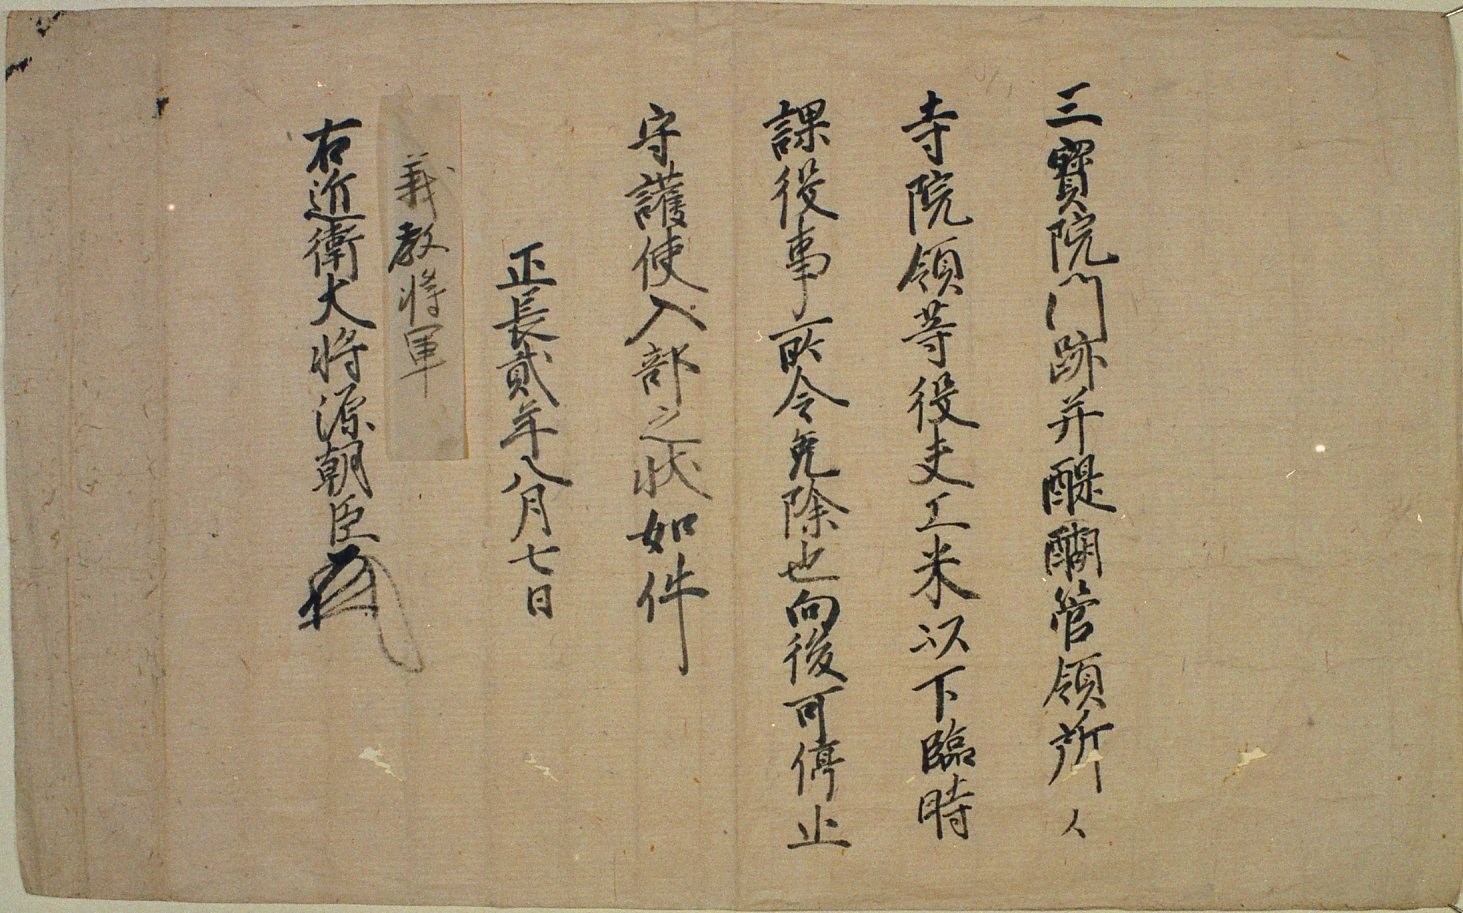 三寳院門跡并醍醐管領所々
寺院領等役夫工米以下臨時
課役事所令免除也向後可停止
守護使入部之状如件
正長貳年八月七日
義教将軍
右近衛大将源朝臣